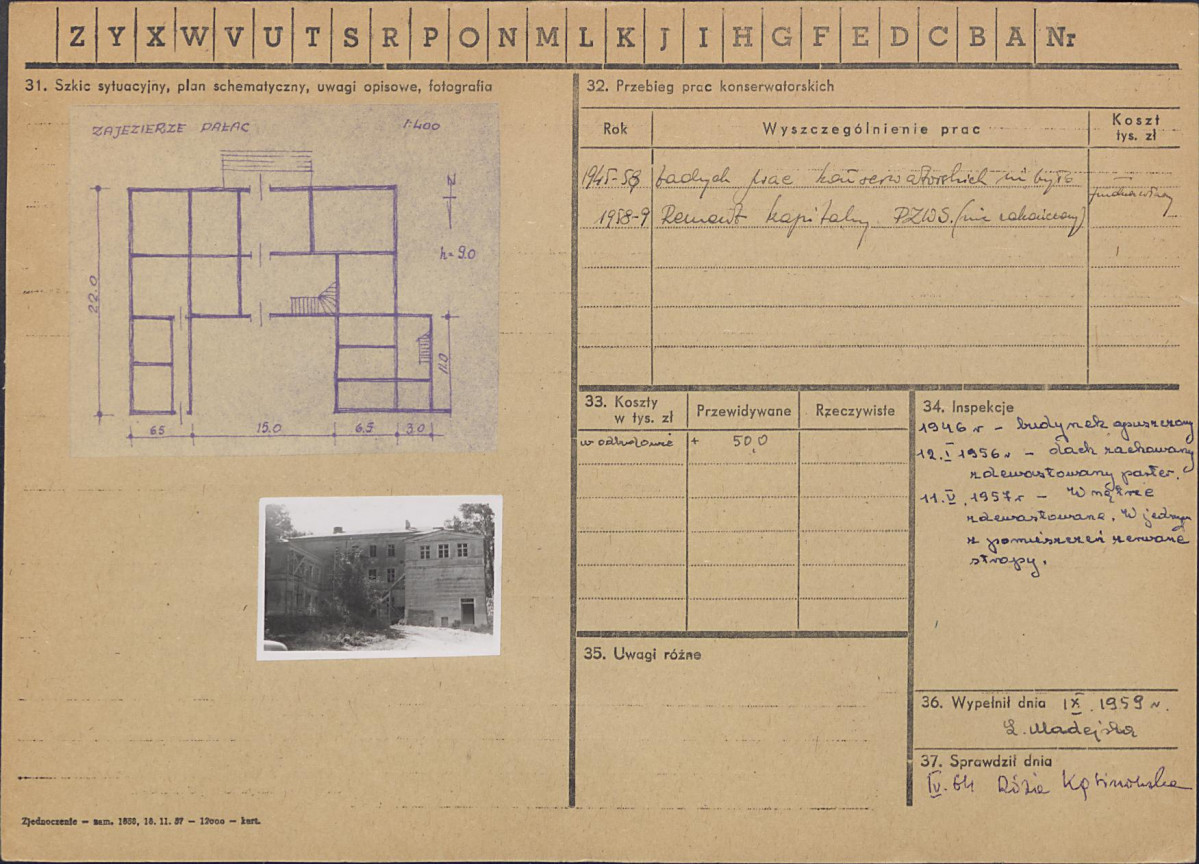 Z Y X W V U T S R P O N M L K J I H G F E D C B A Nr
31. Szkic sytuacyjny, plan schematyczny, uwagi opisowe, fotografia
ZAJEZIERZE PAŁAC 1:400
N
h=9.0
22.0
11.0
65 15.0 6.5 3.0
32. Przebieg prac konserwatorskich
Rok Wyszczególnienie prac Koszt
tys. zł
żadnych prac konserwatorskich nie było —
1958-9 Remont kapitalny PZWS. (nie zakończony)
33. Koszty
w tys. zł Przewidywane Rzeczywiste
+ 500
34. Inspekcje
1946 r – budynek opuszczony
12.I 1956 r – dach zachowany
zdewastowany parter.
11.V.1957 r – Wnętrze
zdewastowane. W jednym
z pomieszczeń zerwane
stropy.
35. Uwagi różne
36. Wypełnił dnia IX.1959 r.
Ł. Madejska
37. Sprawdził dnia
IV.64 Róża Kąsinowska
Zjednoczenie — zam. 1880, 18. 11. 57 — 12000 — kart.